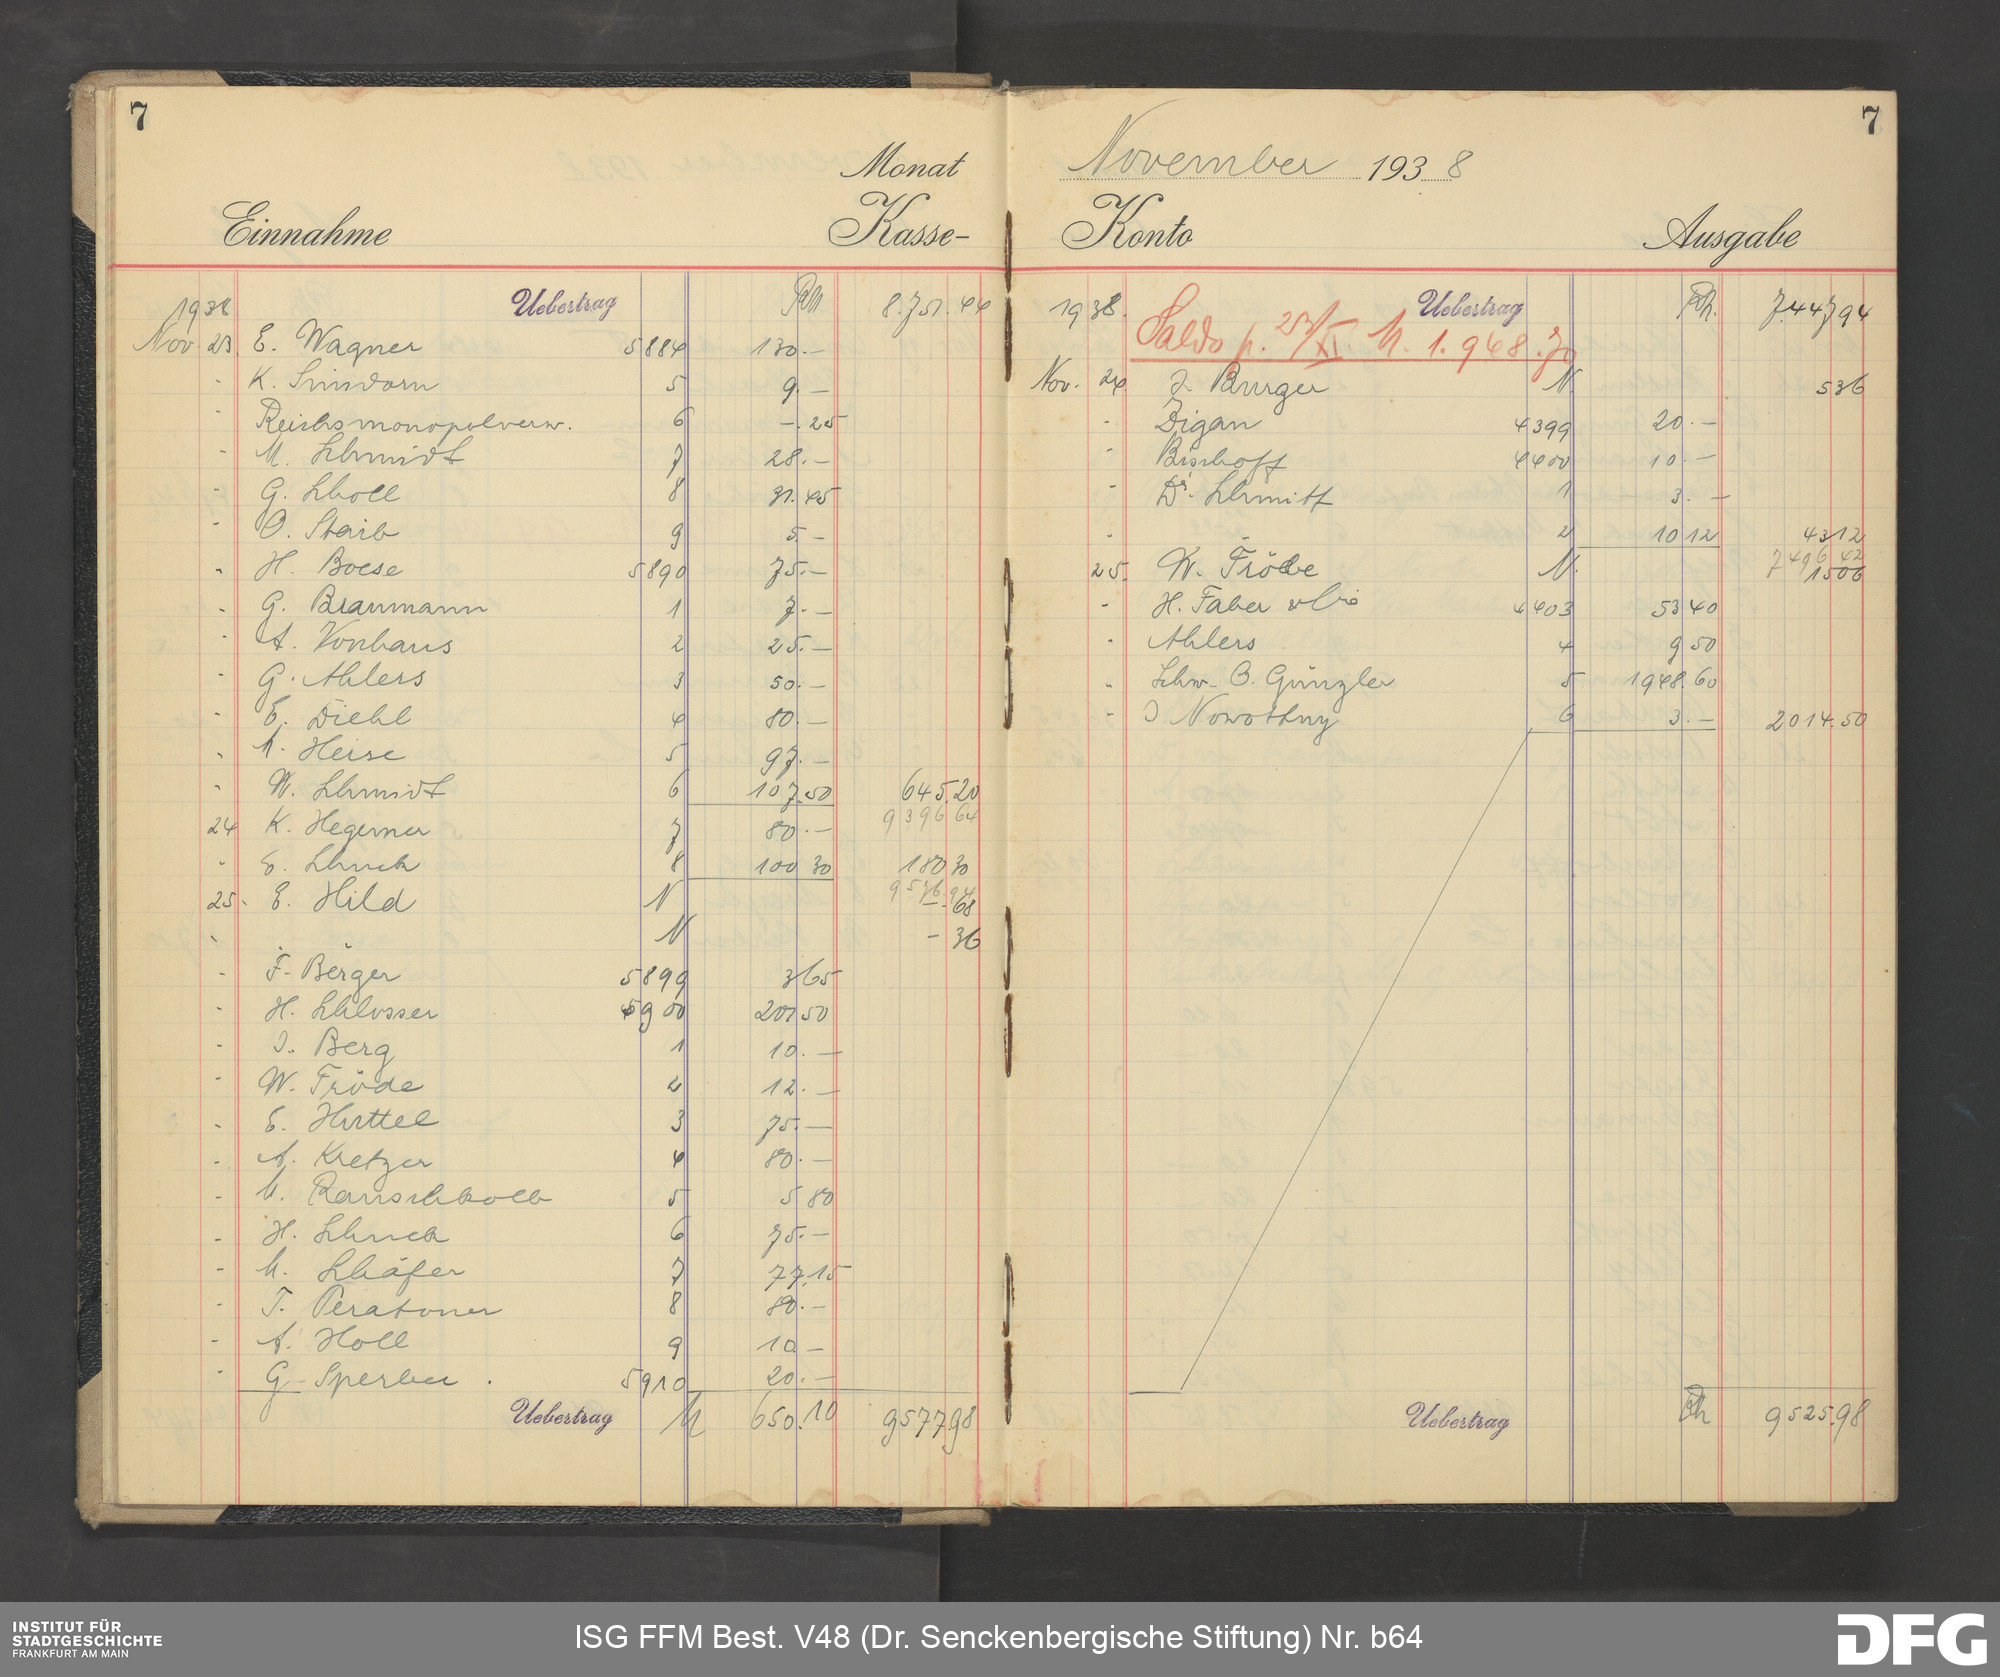 7
Monat
Einnahme Kasse-
1938 Uebertrag RM 8.751.44
Nov 23 E. Wagner 5884 130.—
- K. 5 9.—
- Reichsmonopolverw. 6 —.25
- M. Schmidt 7 28.—
- G. Scholl 8 31.45
- O. Staib 9 5.—
- H. Boese 5890 75.—
- G. Braumann 1 7.—
- A. Vonhaus 2 25.—
- G. Ahlers 3 50.—
- E. Diehl 4 80.—
- A. Heise 5 97.—
- W. Schmidt 6 107.50 645.20
9396 64
24 K. Hegemer 7 80.—
- E. Schuck 8 100 30 180 30
9576.94
25. E. Hild N —.68
- N — 36
- F. Berger 5899 3 65
- H. Schlosser 5900 201 50
- J. Berg 1 10.—
- W. Fröde 2 12.—
- E. Hüttel 3 75.—
- A. Kretzer 4 80.—
- M. Rauschkolb 5 5 80
- H. Schuck 6 75.—
- M. Schäfer 7 77.15
- T. Peratoner 8 80.—
- A. Holl 9 10.—
- G. Sperber 5910 20.—
Uebertrag M 650.10 9577.98
7
November 1938
Konto Ausgabe
1938. Uebertrag RM. 7.447 94
Saldo p. 23/XI. M. 1.948.70
Nov. 24 J. Burger N. 5 36
- Zigan 4399 20.—
- Bischoff 4400 10.—
- Dr. Schmitt 1 3.—
- - 2 10 12 43 12
7496 42
25. W. Fröbe N. 15 06
- H. Faber 4403 53 40
- Ahlers 4 9 50
- Schw. O. Günzler 5 1948.60
- J Nowothny 6 3.— 2014.50
Uebertrag RM 9525.98
INSTITUT FÜR
STADTGESCHICHTE
FRANKFURT AM MAIN
ISG FFM Best. V48 (Dr. Senckenbergische Stiftung) Nr. b64
DFG